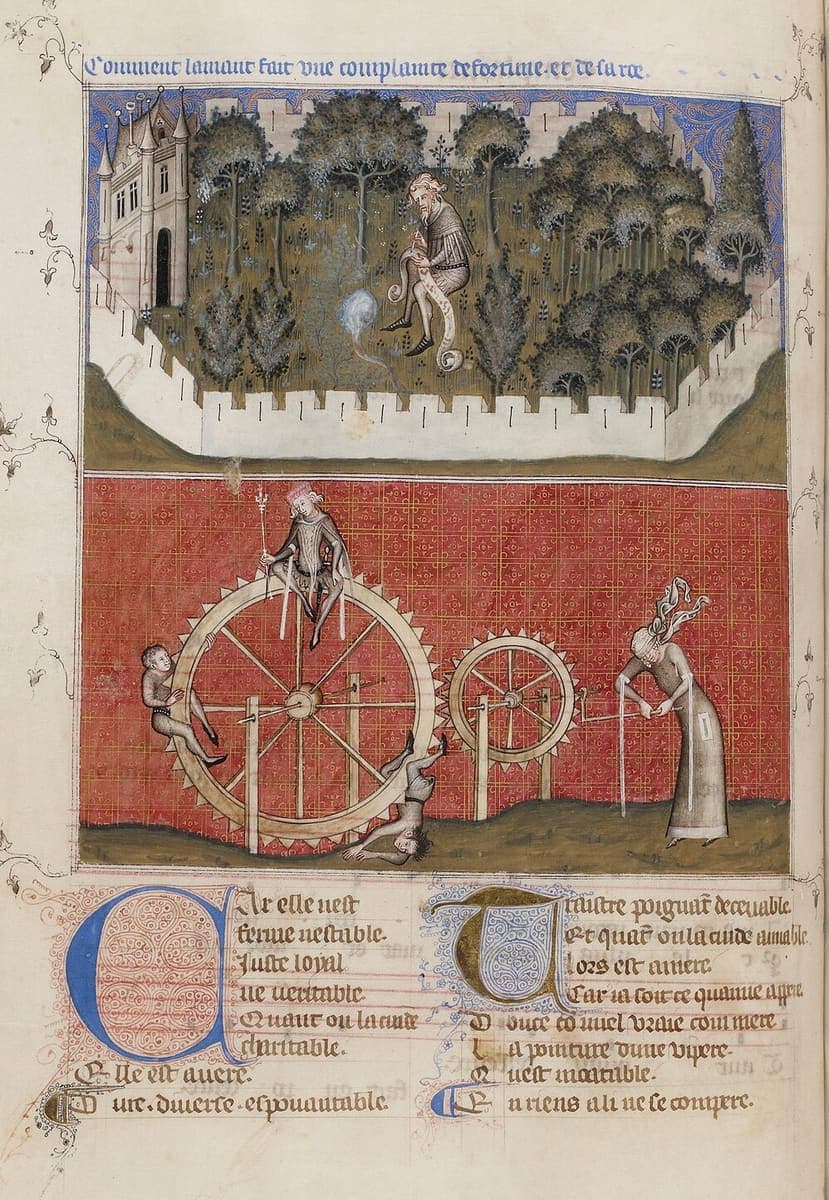 Comment lamant fait vne complainte de fortune et de sa roe.
Car elle nest
ferme nestable.
Juste loyal
ne veritable.
Quant on la cuide
charitable.
Elle est auere.
Dure. diuerse. espouantable.
Traistre poignāt deceuable.
Et quāt on la cuide amiable.
Lors est amere.
Car ia soit ce quamie appere.
Douce cō miel vraie com mere
La pointure dune vipere.
Quest incurable.
En riens a li ne se compere.